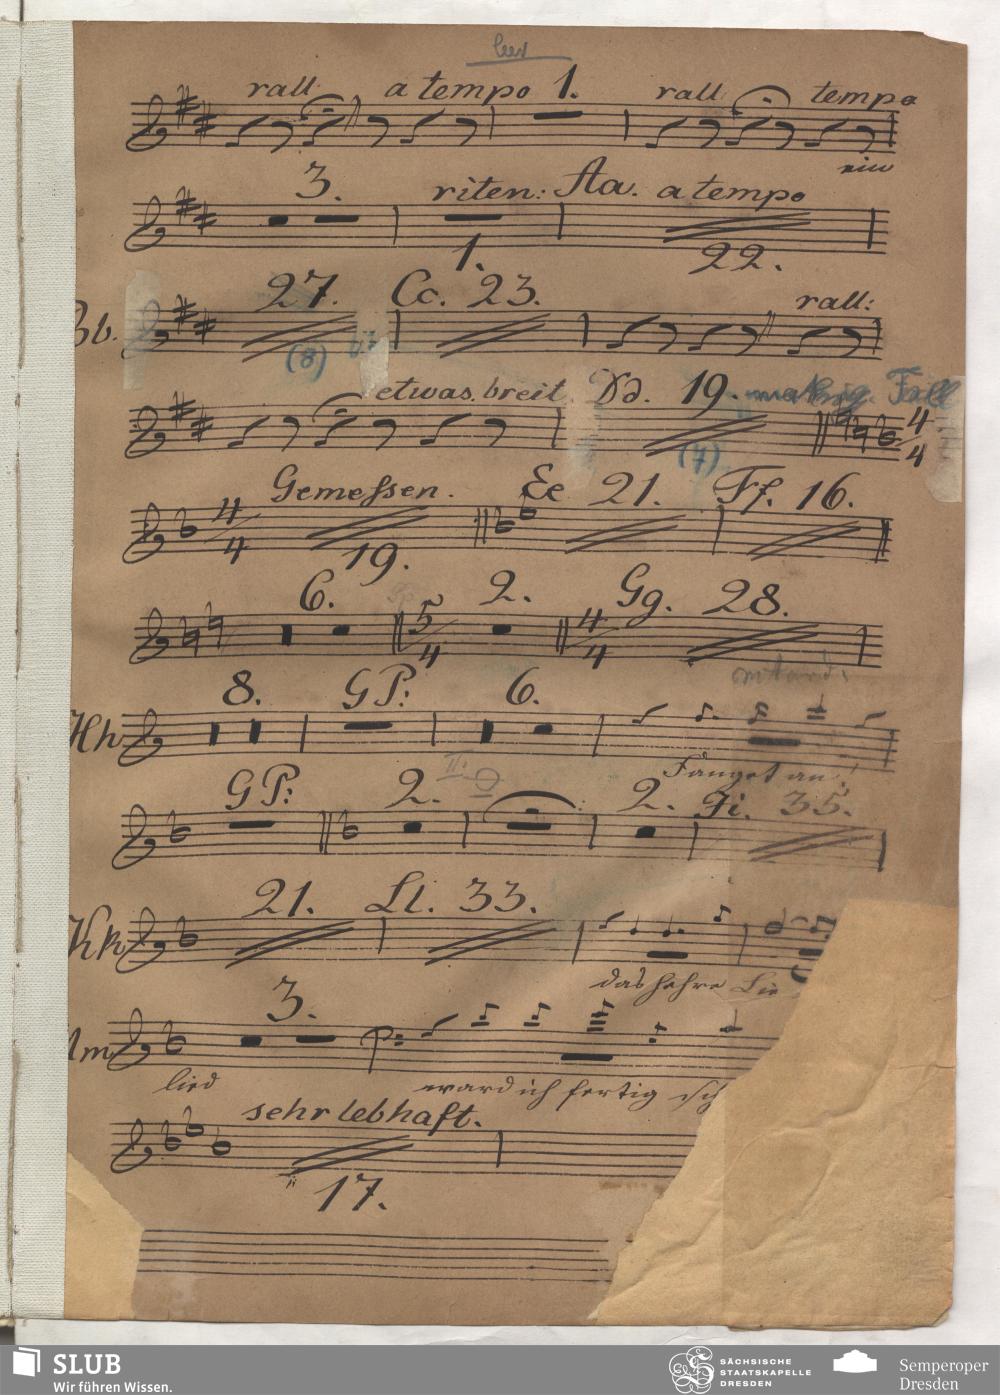 leer
rall a tempo 1. rall tempo
3. riten: Aa. a tempo
1. 22.
Bb. 27. Cc. 23. rall:
(8)
etwas breit Dd. 19. Fall
(7) 4/4
Gemessen. Ee 21. Ff. 16.
4/4 19.
6. 2. Gg. 28.
5/4 4/4
Hh 8. GP. 6.
Fanget an!
II.
GP: 2. 2. Ji. 35.
Kk 21. Ll. 33.
das hehre Lie
3.
lied ward ich fertig sch
sehr lebhaft.
17.
SLUB
Wir führen Wissen.
SÄCHSISCHE
STAATSKAPELLE
DRESDEN
Semperoper
Dresden